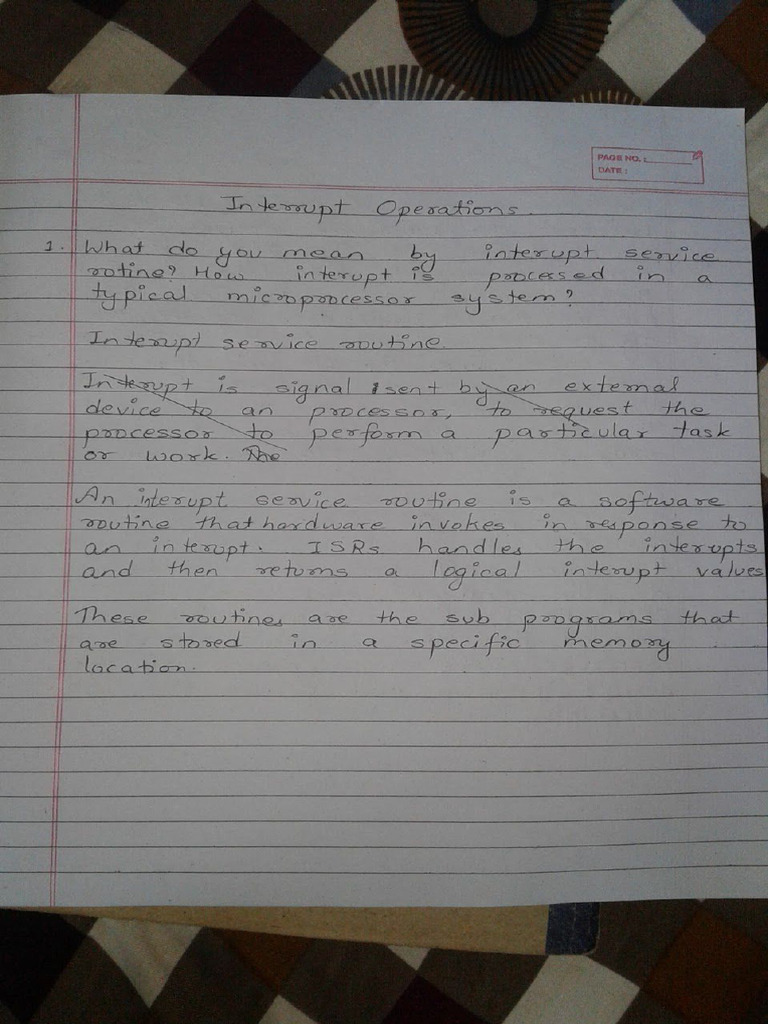 PAGE NO.:
DATE:
Interrupt Operations.
1. What do you mean by interupt service
rotine? How interupt is processed in a
typical microprocessor system?
Interupt service routine.
Interupt is signal sent by an external
device to an processor, to request the
processor to perform a particular task
or work. The
An interupt service routine is a software
routine that hardware invokes in response to
an interupt. ISRs handles the interupts
and then returns a logical interupt values
These routines are the sub programs that
are stored in a specific memory
location.